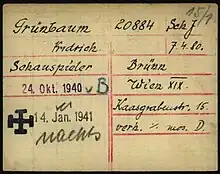 15/9
Grünbaum 20884 Sch J
Fridrich 7.4.80.
Schauspieler Brünn
24. Okt. 1940 v B Wien XIX.
Kaasgrabenstr. 15
14. Jan. 1941 verh. % mos. D.
nachts